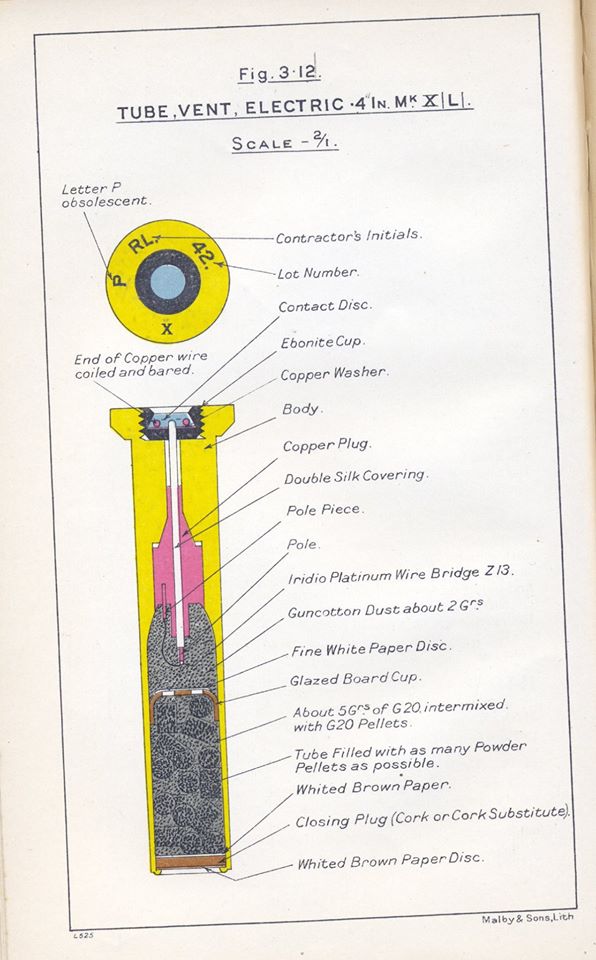 Fig. 3·12.
TUBE, VENT, ELECTRIC ·4 IN. MK X|L|.
SCALE – 2/1.
Letter P
obsolescent.
P
RL.
42.
X
Contractor's Initials.
Lot Number.
Contact Disc.
End of Copper wire
coiled and bared.
Ebonite Cup.
Copper Washer.
Body.
Copper Plug.
Double Silk Covering.
Pole Piece.
Pole.
Iridio Platinum Wire Bridge Z13.
Guncotton Dust about 2 Grs
Fine White Paper Disc.
Glazed Board Cup.
About 5Grs of G20, intermixed.
with G20 Pellets.
Tube Filled with as many Powder
Pellets as possible.
Whited Brown Paper.
Closing Plug (Cork or Cork Substitute).
Whited Brown Paper Disc.
L525
Malby & Sons, Lith